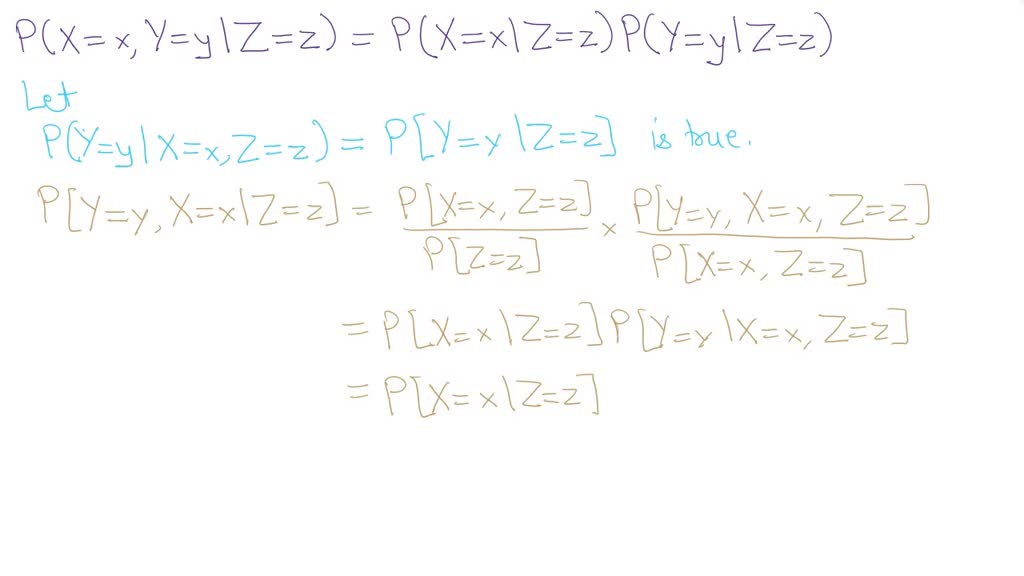 P(X=x, Y=y|Z=z) = P(X=x|Z=z)P(Y=y|Z=z)
Let
P(Y=y|X=x, Z=z) = P[Y=y|Z=z] is true.
P[Y=y, X=x|Z=z] = P[X=x, Z=z] / P[Z=z] × P[Y=y, X=x, Z=z] / P[X=x, Z=z]
= P[X=x|Z=z]P[Y=y|X=x, Z=z]
= P[X=x|Z=z]